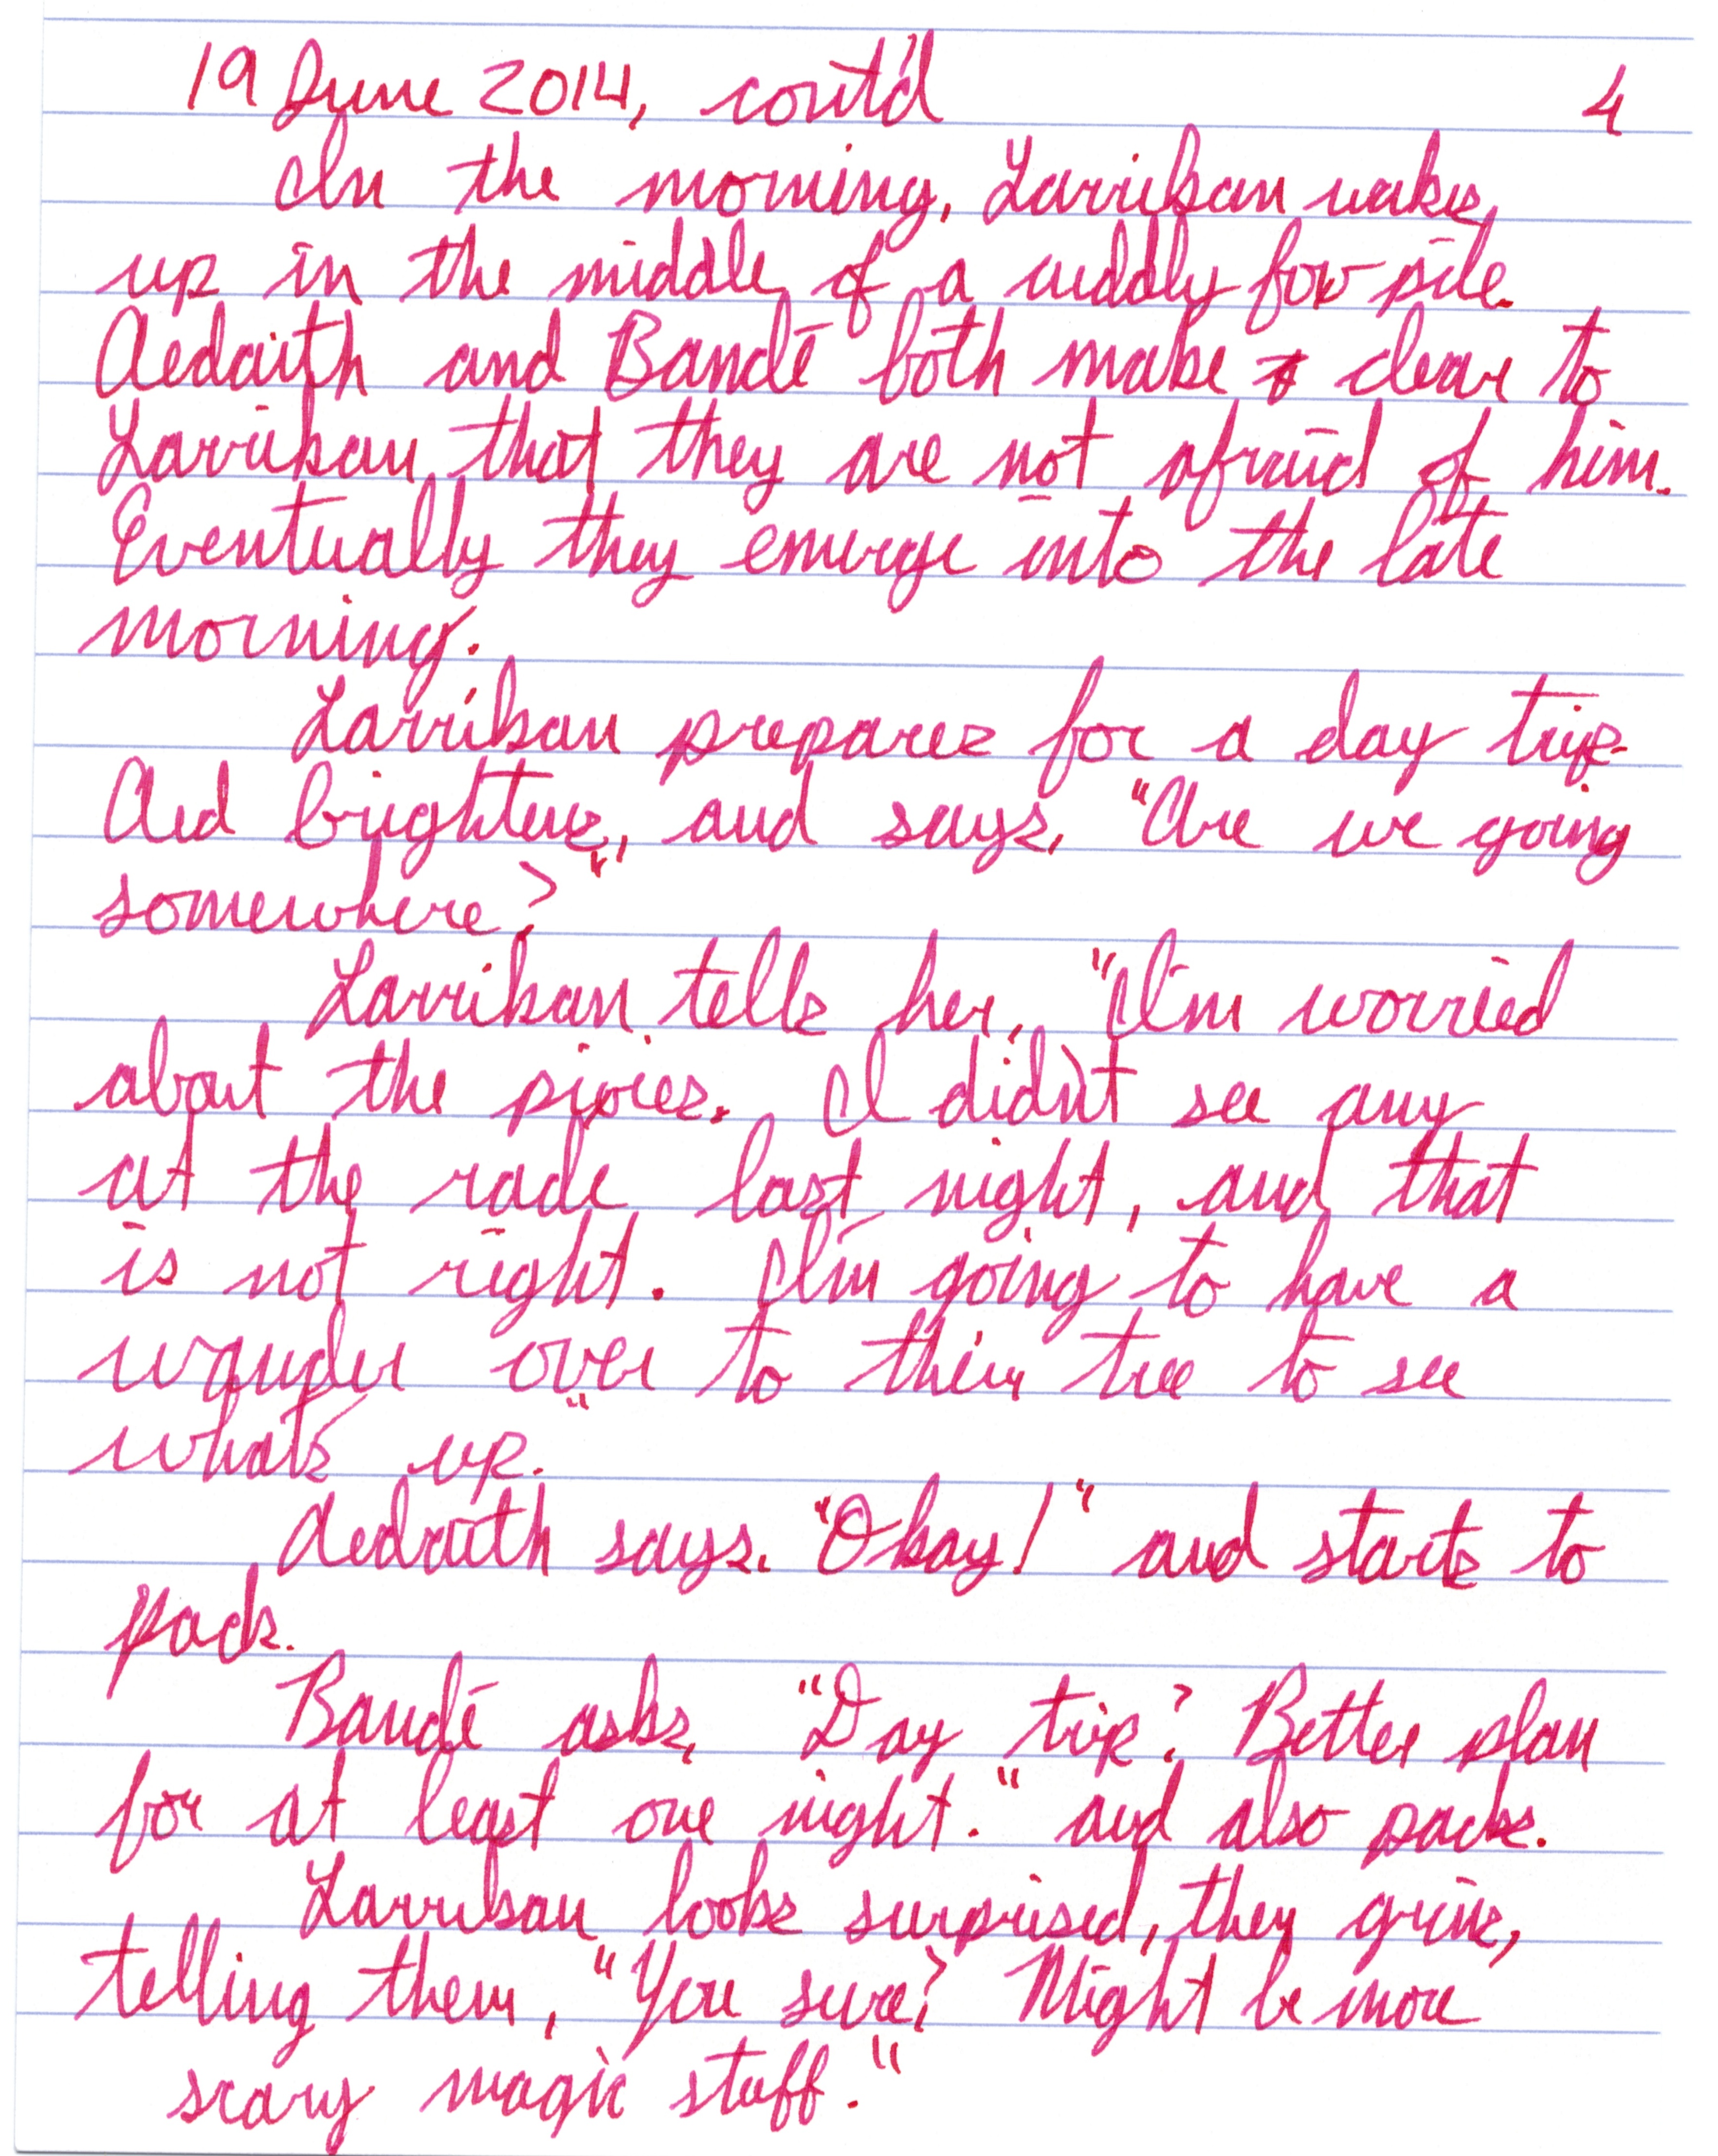 19 June 2014, cont'd 4
In the morning, Larrikan wakes
up in the middle of a cuddly fox pile.
Aedaith and Bandé both make clear to
Larrikan that they are not afraid of him.
Eventually they emerge into the late
morning.
Larrikan prepares for a day trip.
Aed brightens, and says, "Are we going
somewhere?"
Larrikan tells her, "I'm worried
about the pixies. I didn't see any
at the rade last night, and that
is not right. I'm going to have a
wander over to their tree to see
what's up."
Aedaith says, "Okay!" and starts to
pack.
Bandé asks, "Day trip? Better plan
for at least one night." and also packs.
Larrikan looks surprised, then grins,
telling them, "You sure? Might be more
scary magic stuff."